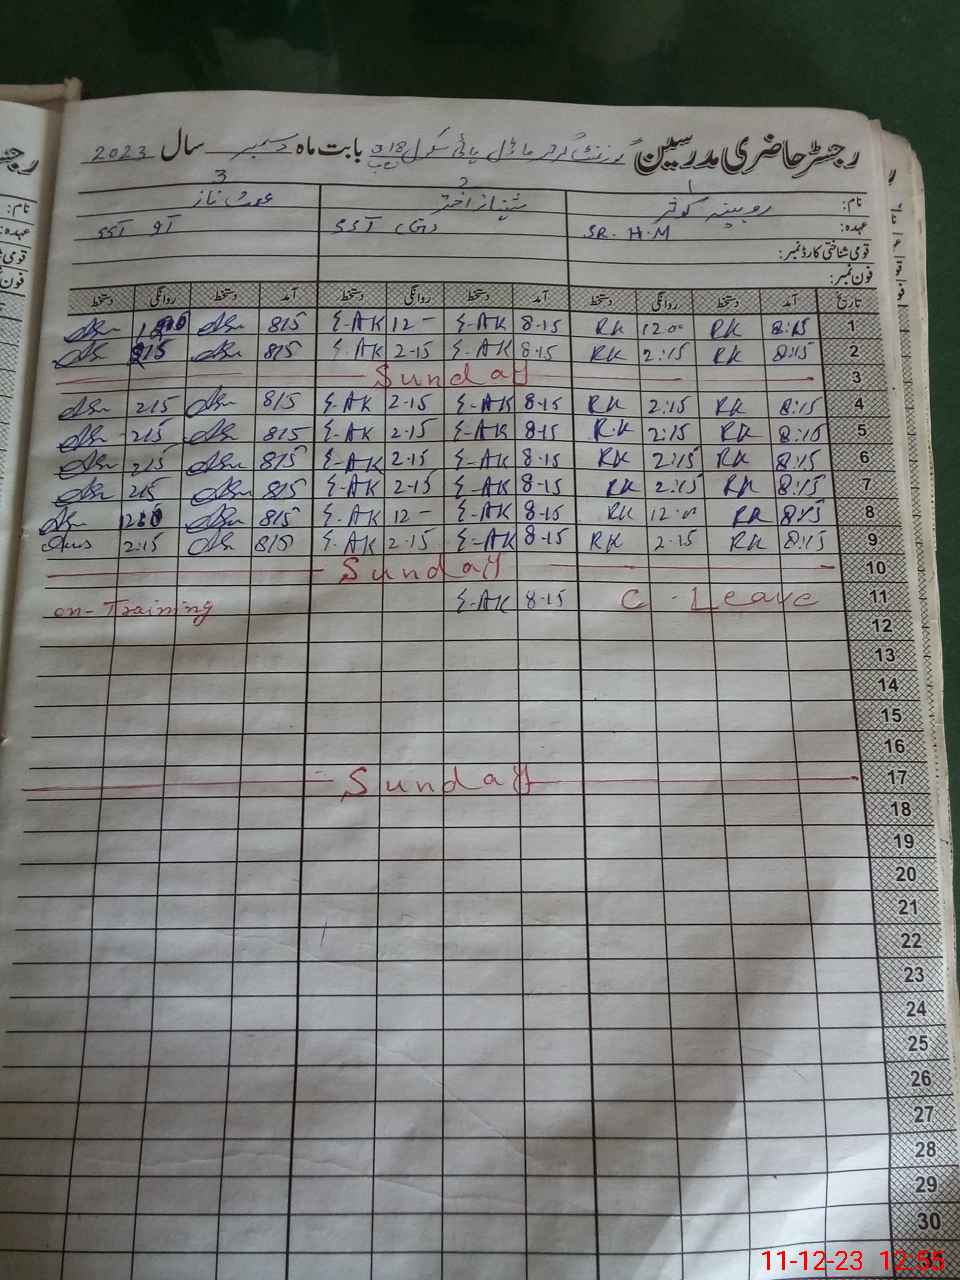 رجسٹر حاضری مدرسین گورنمنٹ گرلز ماڈل ہائی سکول 18 بابت ماہ دسمبر سال 2023
1 2 3
نام: روبینہ کوثر شہناز اختر ناز
عہدہ: SR. H.M SST (G) SST
قومی شناختی کارڈ نمبر:
فون نمبر:
تاریخ آمد دستخط روانگی دستخط آمد دستخط روانگی دستخط آمد دستخط روانگی دستخط
1 8:15 RK 12.00 RK 8-15 S-AK 12- S-AK 815
2 8:15 RK 2:15 RK 8-15 S-AK 2-15 S-AK 815 215
3 Sunday
4 8:15 RK 2:15 RK 8-15 S-AK 2-15 S-AK 815 215
5 8:15 RK 2:15 RK 8-15 S-AK 2-15 S-AK 815 215
6 8:15 RK 2:15 RK 8-15 S-AK 2-15 S-AK 815 215
7 8:15 RK 2:15 RK 8-15 S-AK 2-15 S-AK 815 215
8 8:15 RK 12.00 RK 8-15 S-AK 12- S-AK 815
9 8:15 RK 2.15 RK 8-15 S-AK 2-15 S-AK 815 2:15
10 Sunday
11 C-Leave 8-15 S-AK on-Training
12
13
14
15
16
17 Sunday
18
19
20
21
22
23
24
25
26
27
28
29
30
11-12-23 12:55